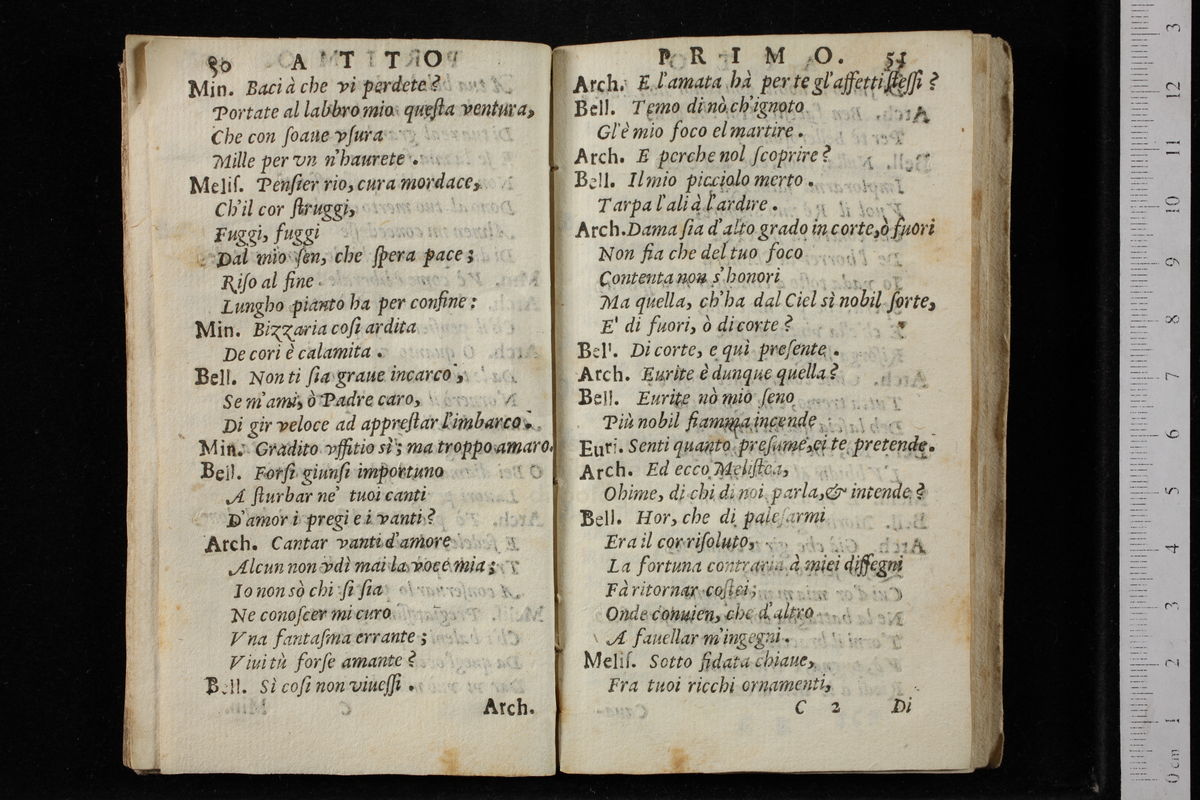 50 ATTO
Min. Baci à che vi perdete?
Portate al labbro mio queſta ventura,
Che con ſoaue vſura
Mille per vn n'haurete.
Meliſ. Penſier rio, cura mordace,
Ch'il cor ſtruggi,
Fuggi, fuggi
Dal mio ſen, che ſpera pace;
Riſo al fine
Lungho pianto ha per confine:
Min. Bizzaria coſi ardita
De cori è calamita.
Bell. Non ti ſia graue incarco,
Se m'ami, ò Padre caro,
Di gir veloce ad appreſtar l'imbarco.
Min. Gradito vffitio sì; ma troppo amaro.
Bell. Forſi giunſi importuno
A ſturbar ne' tuoi canti
D'amor i pregi e i vanti?
Arch. Cantar vanti d'amore
Alcun non vdì mai la voce mia;
Io non sò chi ſi ſia
Ne conoſcer mi curo
Vna fantaſma errante;
Viui tù forſe amante?
Bell. Sì coſi non viueſſi.
Arch.
PRIMO. 51
Arch. E l'amata hà per te gl'affetti ſteſſi?
Bell. Temo di nò ch'ignoto
Gl'è mio foco el martire.
Arch. E perche nol ſcoprire?
Bell. Il mio picciolo merto.
Tarpa l'ali à l'ardire.
Arch. Dama ſia d'alto grado in corte, ò fuori
Non fia che del tuo foco
Contenta non s'honori
Ma quella, ch'ha dal Ciel sì nobil ſorte,
E' di fuori, ò di corte?
Bel'. Di corte, e quì preſente.
Arch. Eurite è dunque quella?
Bell. Eurite nò mio ſeno
Più nobil fiamma incende
Euri. Senti quanto preſume, ei te pretende.
Arch. Ed ecco Meliſtea,
Ohime, di chi di noi parla, & intende?
Bell. Hor, che di paleſarmi
Era il cor riſoluto,
La fortuna contraria à miei diſſegni
Fà ritornar coſtei;
Onde conuien, che d'altro
A fauellar m'ingegni.
Meliſ. Sotto fidata chiaue,
Fra tuoi ricchi ornamenti,
C 2 Di
0 cm 1 2 3 4 5 6 7 8 9 10 11 12 13